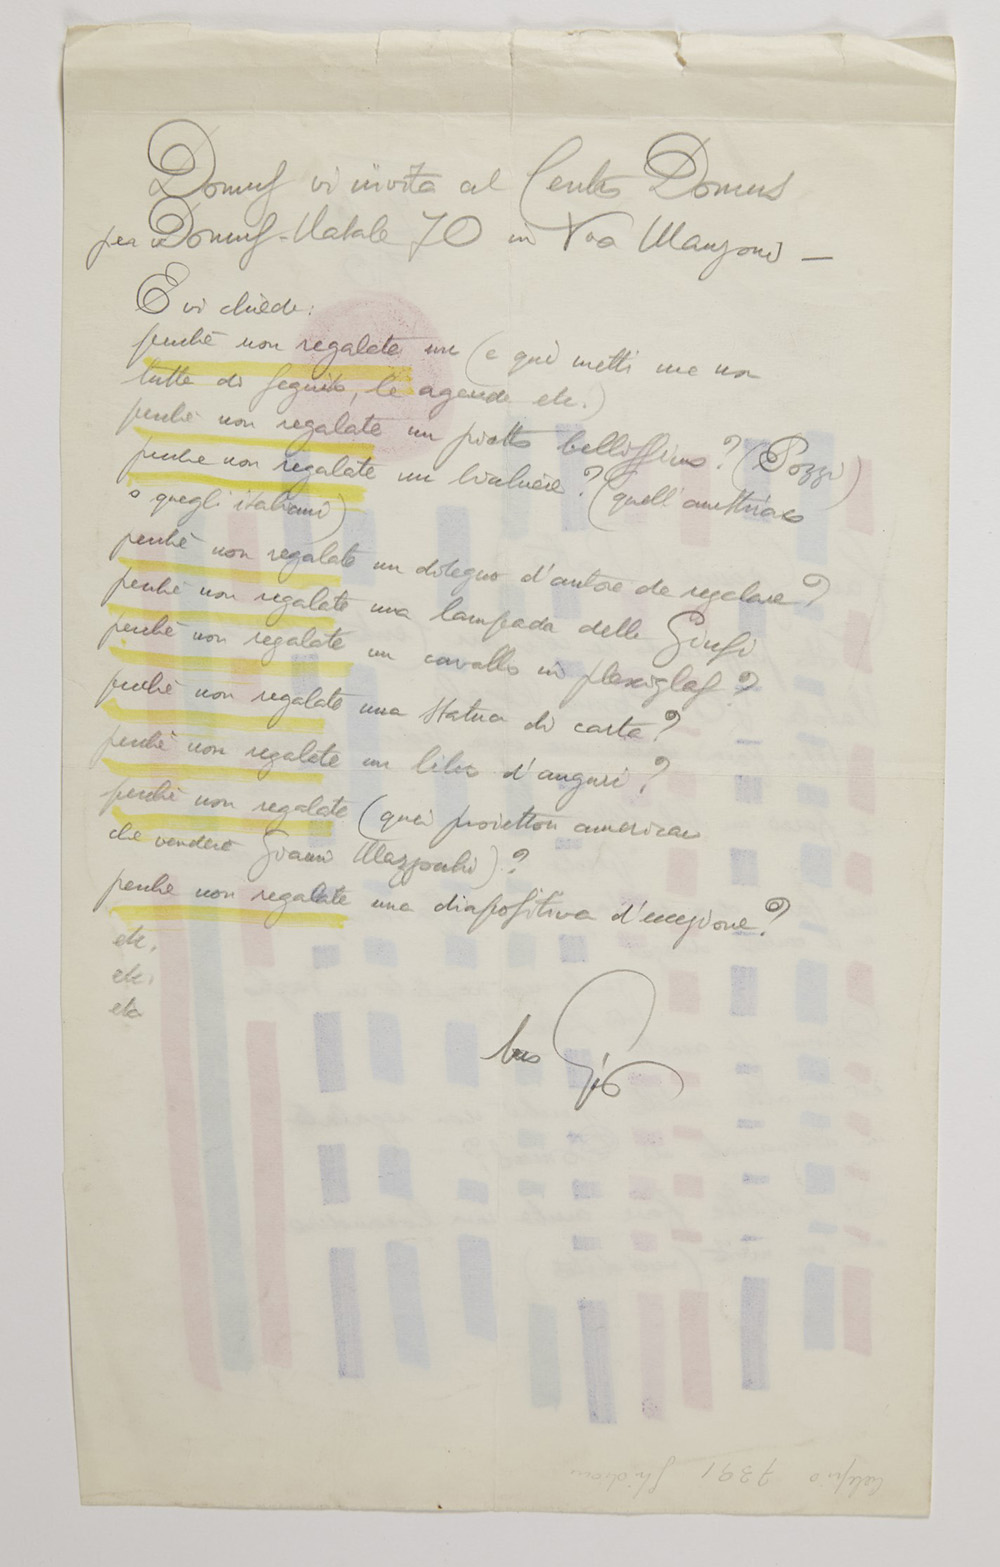 Domus vi invita al Centro Domus
per Domus-Natale 70 in Via Manzoni —
E vi chiede:
perchè non regalate un (e qui metti me non
tutte di seguito, le agende etc.)
perchè non regalate un piatto bellissimo? (Pozzi)
perchè non regalate un bicchiere? (quell'austriaco
o quegli italiani)
perchè non regalate un disegno d'autore da regalare?
perchè non regalate una lampada della
perchè non regalate un cavallo in plexiglas?
perchè non regalate una statua di carta?
perchè non regalate un libro d'auguri?
perchè non regalate (quei proiettori americani
che vendere Gianni Mazzocchi)?
perchè non regalate una diapositiva d'eccezione?
etc.
etc.
etc
tuo Giò
7391